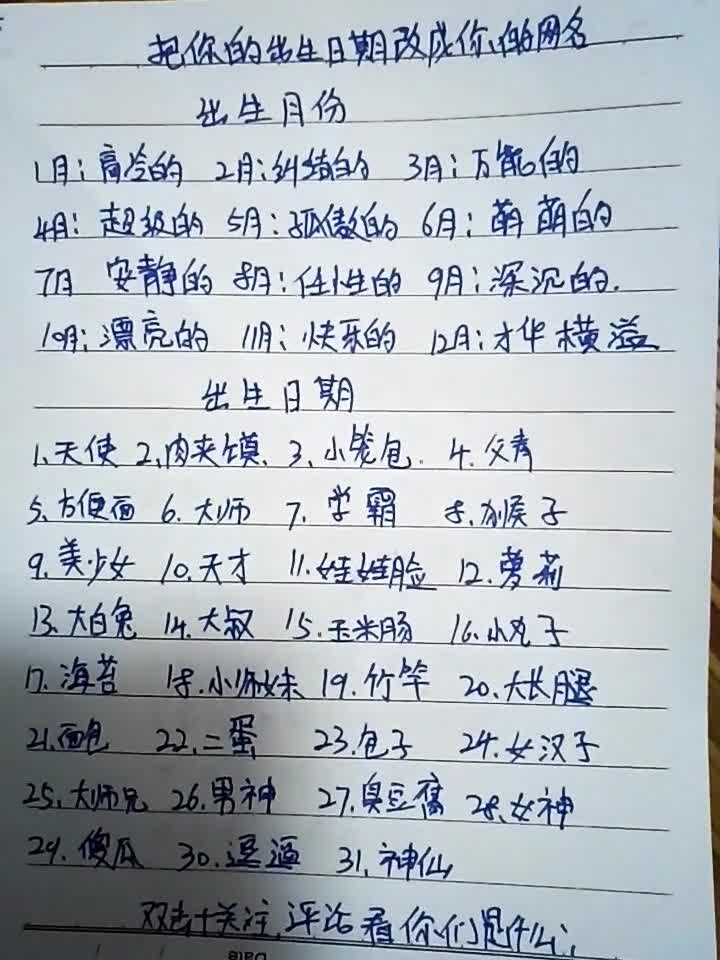 把你的出生日期改成你的网名
出生月份
1月：高冷的 2月：纠结的 3月：万能的
4月：超级的 5月：孤傲的 6月：萌萌的
7月 安静的 8月：任性的 9月：深沉的.
10月：漂亮的 11月：快乐的 12月：才华横溢
出生日期
1、天使 2、肉夹馍、 3、小笼包. 4.
5、方便面 6. 大师 7. 学霸 8. 猴子
9. 美少女 10.天才 11.娃娃脸 12. 萝莉
13.大白兔 14.大叔 15.玉米肠 16.小丸子
17.海苔 18.小师妹 19.竹竿 20.大长腿
21.面包 22.二蛋 23.包子 24.女汉子
25.大师兄 26.男神 27.臭豆腐 28.女神
29.傻瓜 30.逗逼 31.神仙
双击+关注，评论看你们是什么；
Date